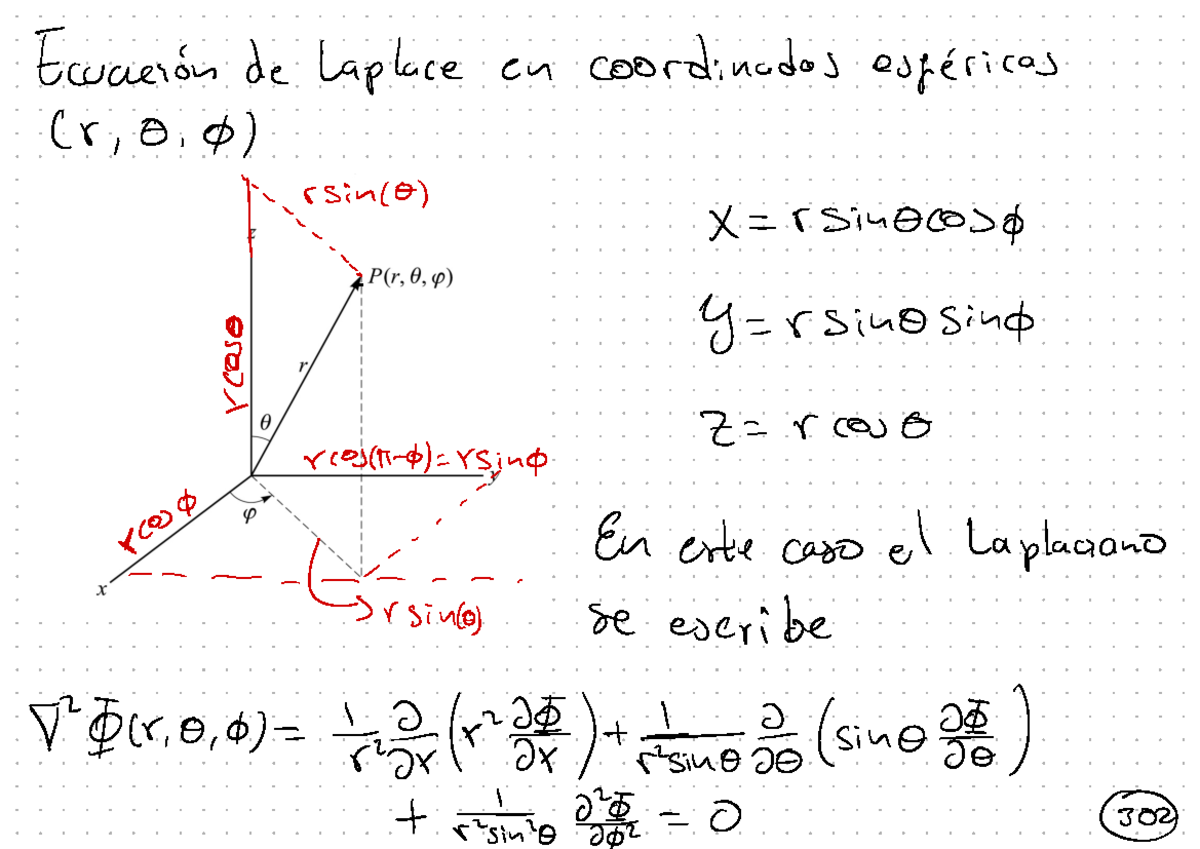 Ecuación de Laplace en coordinadas esféricas
(r, θ, φ)
r sin(θ)
z
P(r, θ, φ)
r cosθ
r
θ
r cos(π-φ) = r sinφ
y
r cosφ
φ
x
r sin(θ)
x = r sinθ cosφ
y = r sinθ sinφ
z = r cosθ
En este caso el Laplaciano
se escribe
∇²Φ(r, θ, φ) = 1/r² ∂/∂r (r² ∂Φ/∂r) + 1/(r² sinθ) ∂/∂θ (sinθ ∂Φ/∂θ)
+ 1/(r² sin²θ) ∂²Φ/∂φ² = 0
302